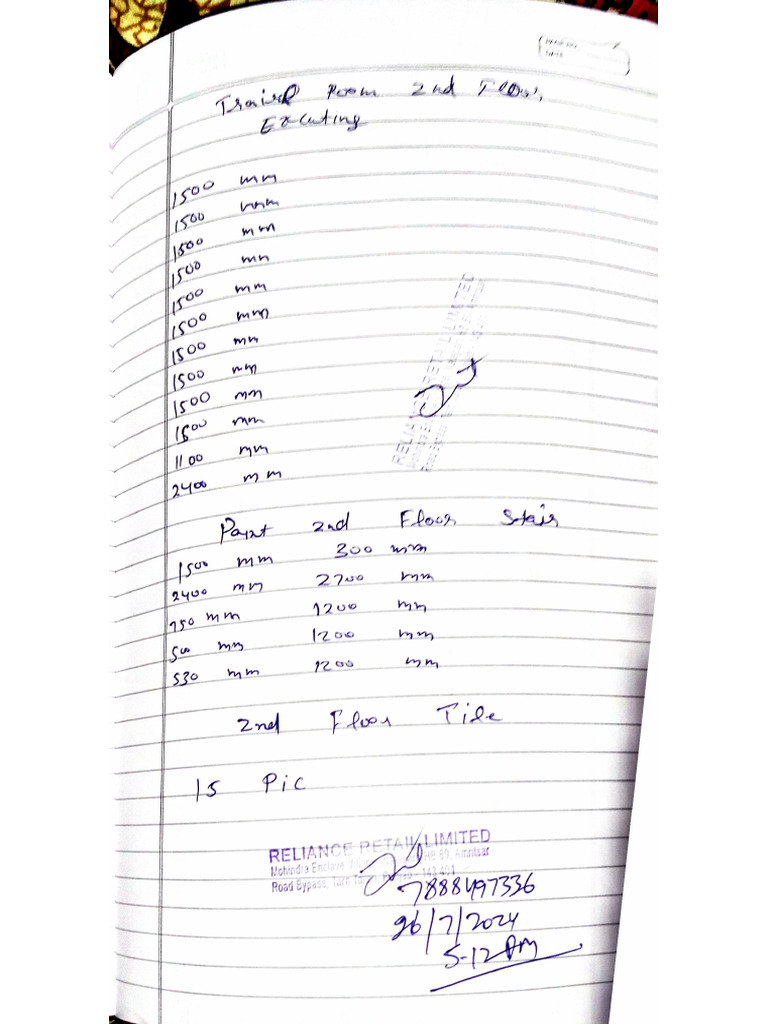 Room 2nd Floor,
1500 mm
1500 mm
1500 mm
1500 mm
1500 mm
1500 mm
1500 mm
1500 mm
1500 mm
1500 mm
1100 mm
2400 mm
RELIANCE RETAIL LIMITED
Paint 2nd Floor Stair
1500 mm 300 mm
2400 mm 2700 mm
750 mm 1200 mm
500 mm 1200 mm
530 mm 1200 mm
2nd Floor Tile
15 Pic
RELIANCE RETAIL LIMITED
Mohindra Enclave, NHB 69, Amritsar
Road Bypass, Tarn Taran, Punjab - 143 401
7888497336
26/7/2024
5-12 PM